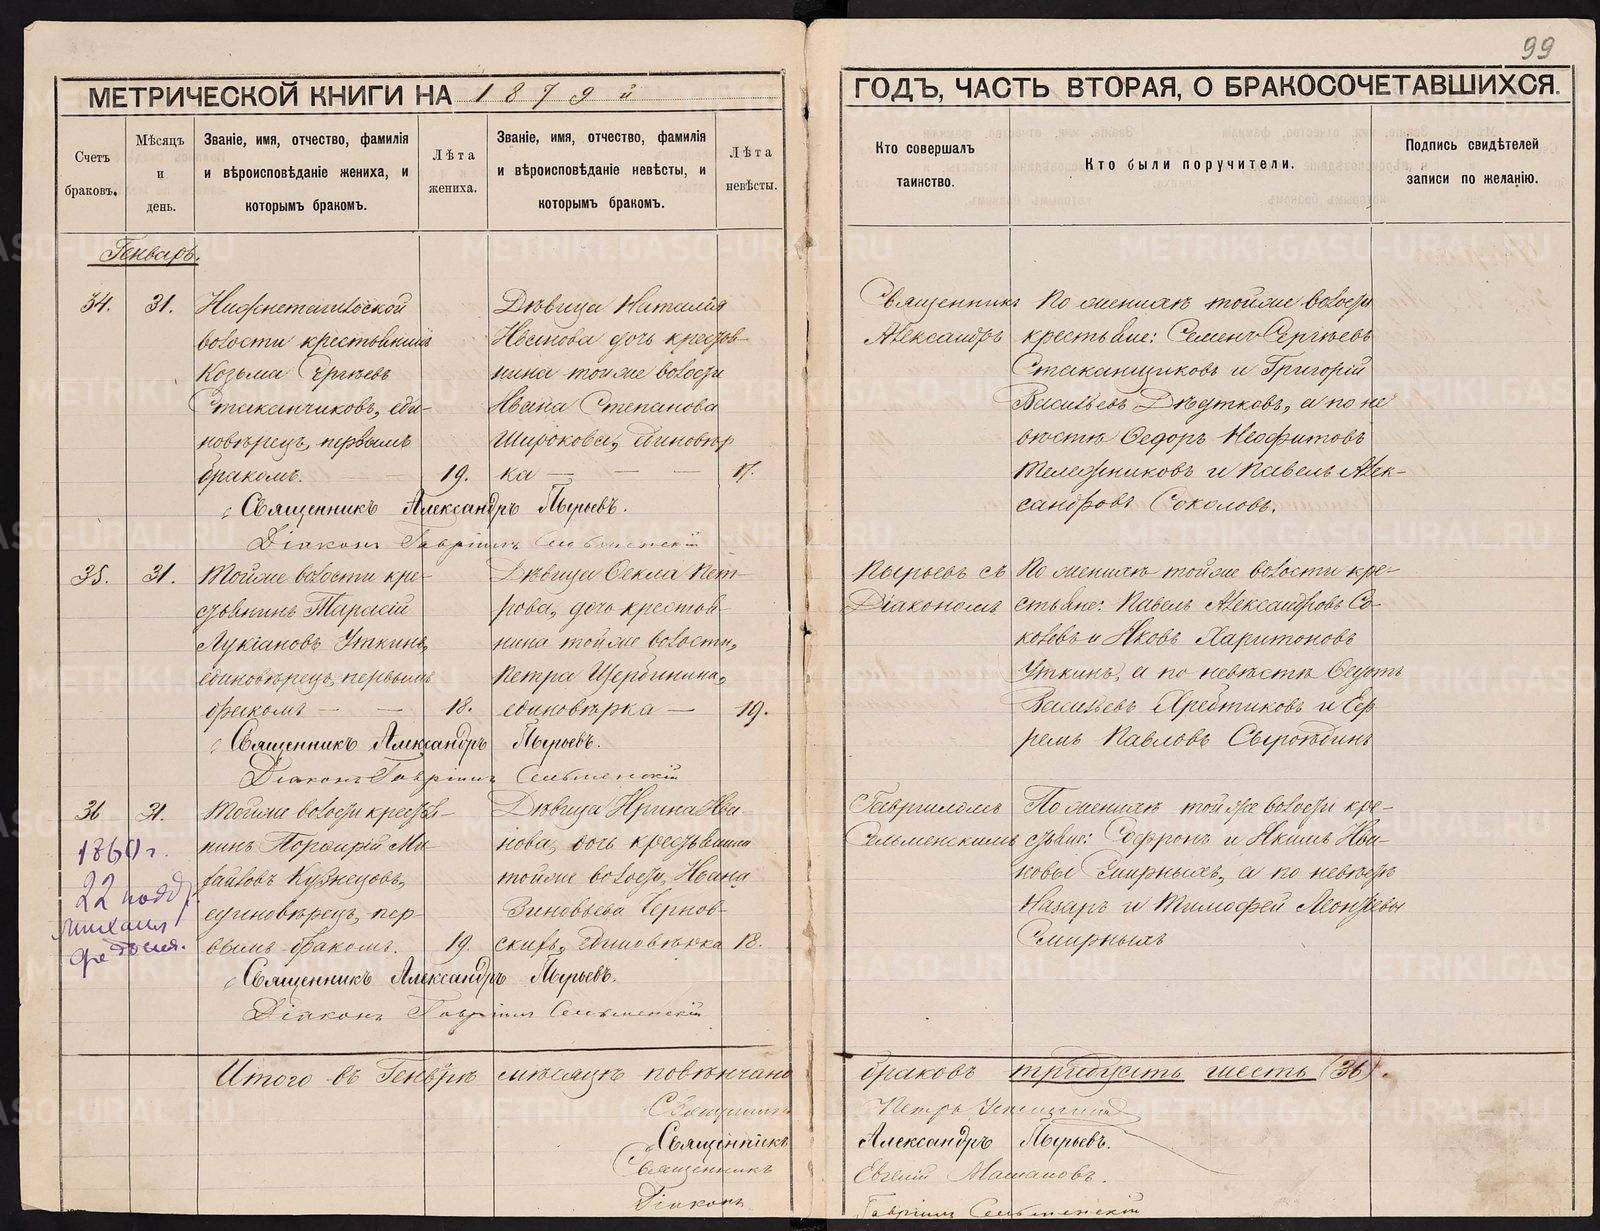 99
МЕТРИЧЕСКОЙ КНИГИ НА 1879й
ГОДЪ, ЧАСТЬ ВТОРАЯ, О БРАКОСОЧЕТАВШИХСЯ.
Счетъ
браковъ.
Мѣсяцъ
и
день.
Званіе, имя, отчество, фамилія
и вѣроисповѣданіе жениха, и
которымъ бракомъ.
Лѣта
жениха.
Званіе, имя, отчество, фамилія
и вѣроисповѣданіе невѣсты, и
которымъ бракомъ.
Лѣта
невѣсты.
Кто совершалъ
таинство.
Кто были поручители.
Подпись свидѣтелей
записи по желанію.
Генварь.
34.
31.
Нижнетагильской
волости крестьянинъ
Козьма Сергѣевъ
Стаканчиковъ, еди-
новѣрецъ, первымъ
бракомъ.
19.
Дѣвица Наталія
Иванова дочь крестья-
нина тойже волости
Ивана Степанова
Широкова, единовѣр
ка
17.
Священникъ
Александръ
По женихѣ тойже волости
крестьяне: Семенъ Сергѣевъ
Стаканщиковъ и Григорій
Васильевъ Дѣдковъ, а по не
вѣстѣ Ѳедоръ Неофитовъ
Тележниковъ и Павелъ Алек-
сандровъ Соколовъ.
Священникъ Александръ Пырьевъ.
Діаконъ Гавріилъ Сельменскій
35.
31.
Тойже волости кре-
стьянинъ Тарасій
Лукіановъ Уткинъ,
единовѣрецъ, первымъ
бракомъ
18.
Дѣвица Ѳекла Пет-
рова, дочь крестья-
нина тойже волости,
Петра Щербинина,
единовѣрка
19.
Пырьевъ съ
Діакономъ
По женихѣ тойже волости кре-
стьяне: Павелъ Александровъ Со-
коловъ и Яковъ Харитоновъ
Уткинъ, а по невѣстѣ Ѳедотъ
Васильевъ
и Еф-
ремъ Павловъ
Священникъ Александръ Пырьевъ.
Діаконъ Гавріилъ Сельменскій
36
31.
1860 г.
22
Михаил
Федосия.
Тойже волости крестья-
нинъ Порфирій Ми-
хайловъ Кузнецовъ,
единовѣрецъ, пер-
вымъ бракомъ.
19.
Дѣвица Ирина Ива-
нова, дочь крестьянина
тойже волости, Ивана
Зиновьева Чернов-
скихъ, единовѣрка
18.
Гавріиломъ
Сельменскимъ
По женихѣ тойже волости кре-
стьяне: Софронъ и Якимъ Ива-
новы Смирныхъ, а по невѣстѣ
Назаръ и Тимофей Леонтьевы
Смирныхъ
Священникъ Александръ Пырьевъ.
Діаконъ Гавріилъ Сельменскій
Итого въ Генварѣ мѣсяцѣ повѣнчано браковъ тридцать шесть (36).
Священникъ Петръ
Священникъ Александръ Пырьевъ.
Священникъ Евгеній
Діаконъ Гавріилъ Сельменскій
METRIKI.GASO-URAL.RU